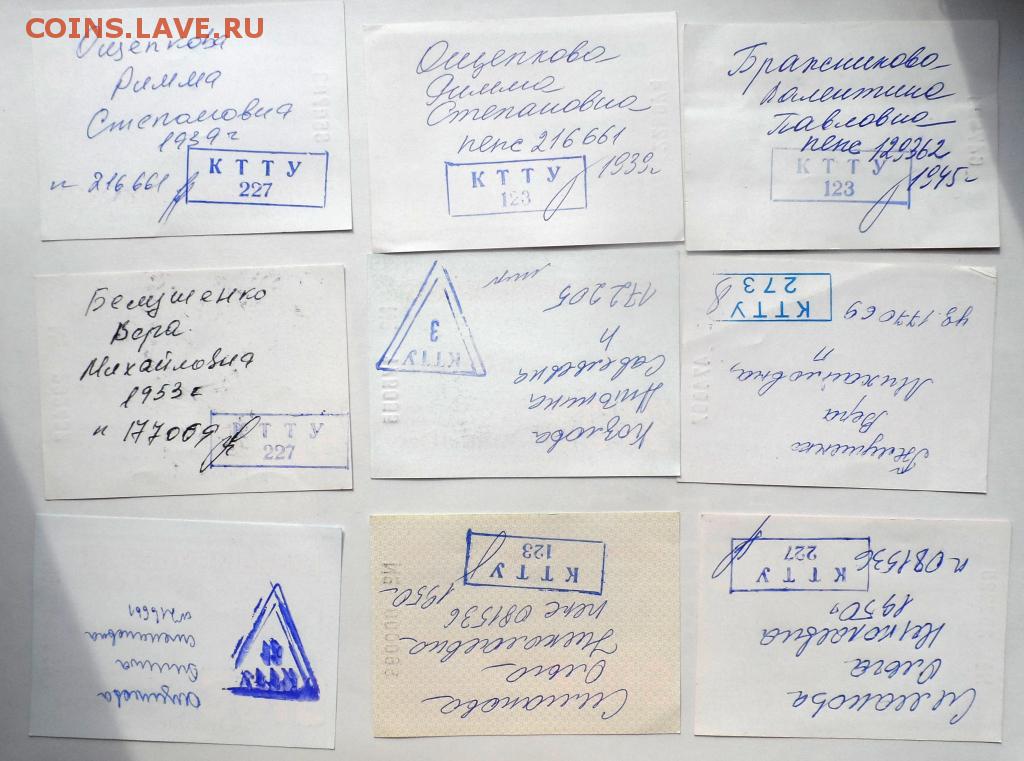 COINS.LAVE.RU
Ощепкова
Римма
Степановна
1939 г
п 216661
КТТУ
227
Ощепкова
Римма
Степановна
пенс 216661
1939 г
КТТУ
123
Бражникова
Валентина
Павловна
пенс 129362
1945 г
КТТУ
123
Белушенко
Вера
Михайловна
1953 г
п 177069
КТТУ
227
Козлова
Савельевна
п
172205
КТТУ
3
Белушенко
Вера
Михайловна,
п
177069
КТТУ
273
Римма
КТТУ
Симанова
Ольга
Николаевна
пенс 081536
1950
КТТУ
123
Симанова
Ольга
Николаевна
1950 г
п 081536
КТТУ
227